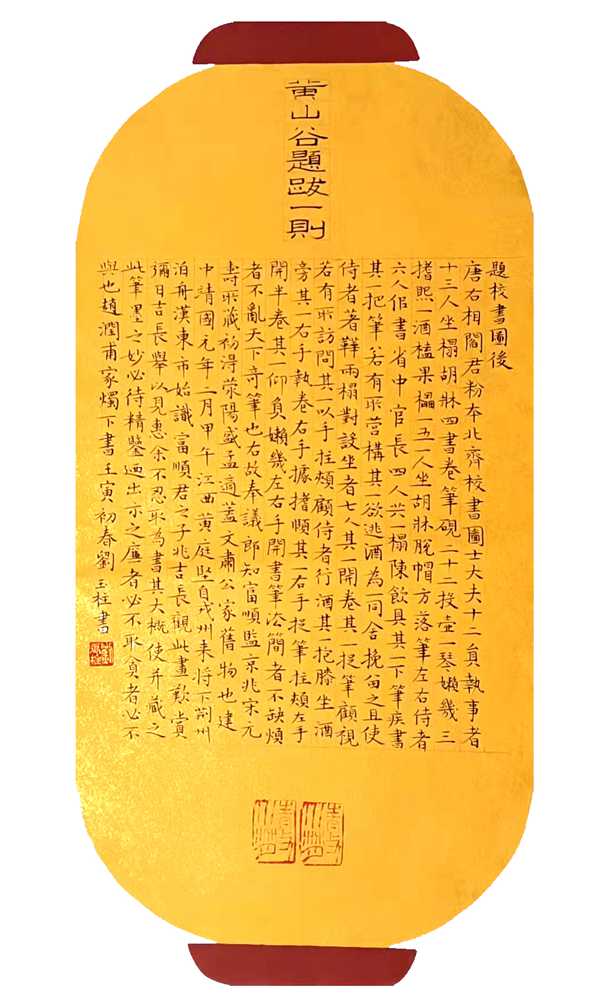 黄山谷題跋一則
題校書圖後
唐右相閻君粉本北齊校書圖士大夫十二員執事者
十三人坐榻胡牀四書卷筆硯二十二投壺一琴嬾幾三
搘熙一酒榼果櫑一五一人坐胡牀脫帽方落筆左右侍者
六人作書省中官長四人共一榻陳飲具其一下筆疾書
其一把筆若有所營構其一欲逃酒為一同舍挽留之且使
侍者著鞾兩榻對設坐者七人其一開卷其一捉筆顧視
若有所訪問其一以手拄頰顧侍者行酒其一抱膝坐酒
旁其一右手執卷右手據搘頤其一右手捉筆拄頰左手
開半卷其一仰負嬾幾左右手開書筆法簡者不缺煩
者不亂天下奇筆也右故奉議郎知富順監京兆宋元
壽所藏初得滎陽盛孟適蓋文肅公家舊物也建
中靖國元年二月甲午江西黄庭堅自戎州来將下荊州
泊舟漢東市始識富順君之子兆吉長觀此畫歎賞
彌日吉長舉以見惠余不忍取為書其大概使并藏之
此筆墨之妙必待精鑒迺出示之廉者必不取貪者必不
與也趙潤甫家燭下書壬寅初春劉玉柱書